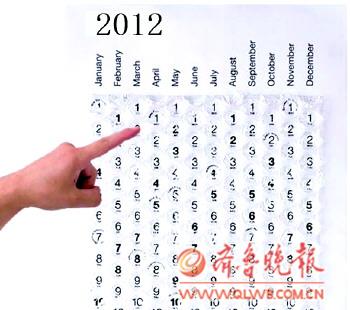 2012
January February March April May June July August September October November December
1 1 1 1 1 1 1 1 1 1 1 1
2 2 2 2 2 2 2 2 2 2 2
3 3 3 3 3 3 3 3 3 3 3
4 4 4 4 4 4 4 4 4 4 4 4
5 5 5 5 5 5 5 5 5 5 5
6 6 6 6 6 6 6 6 6 6 6
7 7 7 7
8 8 8 8
9 9 9 9
10 10
齐鲁晚报
WWW.QLWB.COM.CN